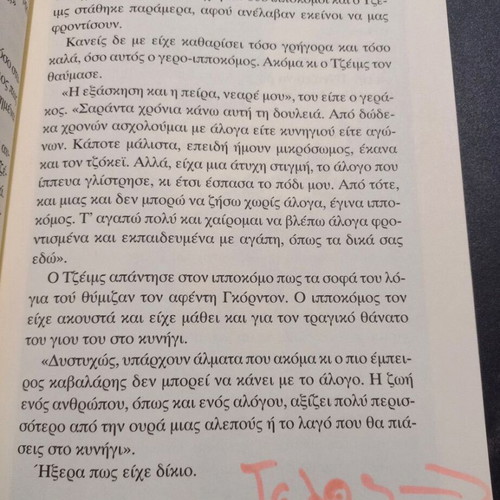 ιμς στάθηκε παράμερα, αφού ανέλαβαν εκείνοι να μας
φροντίσουν.
Κανείς δε με είχε καθαρίσει τόσο γρήγορα και τόσο
καλά, όσο αυτός ο γερο-ιπποκόμος. Ακόμα κι ο Τζέιμς τον
θαύμασε.
«Η εξάσκηση και η πείρα, νεαρέ μου», του είπε ο γερά-
κος. «Σαράντα χρόνια κάνω αυτή τη δουλειά. Από δώδε-
κα χρονών ασχολούμαι με άλογα είτε κυνηγιού είτε αγώ-
νων. Κάποτε μάλιστα, επειδή ήμουν μικρόσωμος, έκανα
και τον τζόκεϊ. Αλλά, είχα μια άτυχη στιγμή, το άλογο που
ίππευα γλίστρησε, κι έτσι έσπασα το πόδι μου. Από τότε,
και μιας και δεν μπορώ να ζήσω χωρίς άλογα, έγινα ιππο-
κόμος. Τ' αγαπώ πολύ και χαίρομαι να βλέπω άλογα φρο-
ντισμένα και εκπαιδευμένα με αγάπη, όπως τα δικά σας
εδώ».
Ο Τζέιμς απάντησε στον ιπποκόμο πως τα σοφά του λό-
για τού θύμιζαν τον αφέντη Γκόρντον. Ο ιπποκόμος τον
είχε ακουστά και είχε μάθει και για τον τραγικό θάνατο
του γιου του στο κυνήγι.
«Δυστυχώς, υπάρχουν άλματα που ακόμα κι ο πιο έμπει-
ρος καβαλάρης δεν μπορεί να κάνει με το άλογο. Η ζωή
ενός ανθρώπου, όπως και ενός αλόγου, αξίζει πολύ περισ-
σότερο από την ουρά μιας αλεπούς ή το λαγό που θα πιά-
σεις στο κυνήγι».
Ήξερα πως είχε δίκιο.
Τελος